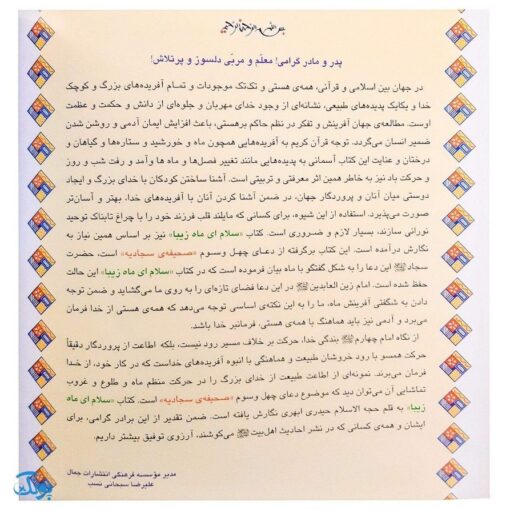 بسم الله الرحمن الرحیم
پدر و مادر گرامی! معلّم و مربّی دلسوز و پرتلاش!
در جهان بینی اسلامی و قرآنی، همه‌ی هستی و تک‌تک موجودات و تمام آفریده‌های بزرگ و کوچک
خدا و یکایک پدیده‌های طبیعی، نشانه‌ای از وجود خدای مهربان و جلوه‌ای از دانش و حکمت و عظمت
اوست. مطالعه‌ی جهان آفرینش و تفکر در نظم حاکم برهستی، باعث افزایش ایمان آدمی و روشن شدن
ضمیر انسان می‌گردد. توجه قرآن کریم به آفریده‌هایی همچون ماه و خورشید و ستاره‌ها و گیاهان و
درختان و عنایت این کتاب آسمانی به پدیده‌هایی مانند تغییر فصل‌ها و ماه ها وآمد و رفت شب و روز
و حرکت باد نیز به خاطر همین اثر معرفتی و تربیتی است. آشنا ساختن کودکان با خدای بزرگ و ایجاد
دوستی میان آنان و پروردگار جهان، در ضمن آشنا کردن آنان با آفریده‌های خدا، بهتر و آسان‌تر
صورت می‌پذیرد. استفاده از این شیوه، برای کسانی که مایلند قلب فرزند خود را با چراغ تابناک توحید
نورانی سازند، بسیار لازم و ضروری است. کتاب «سلام ای ماه زیبا» نیز بر اساس همین نیاز به
نگارش درآمده است. این کتاب برگرفته از دعای چهل وسوم «صحیفه‌ی سجادیه» است، حضرت
سجاد این دعا را به شکل گفتگو با ماه بیان فرموده است که در کتاب «سلام ای ماه زیبا» این حالت
حفظ شده است. امام زین العابدین در این دعا فضای تازه‌ای را به روی ما می‌گشاید و ضمن توجه
دادن به شگفتی آفرینش ماه، ما را به این نکته‌ی اساسی توجه می‌دهد که همه‌ی هستی از خدا فرمان
می‌برد و آدمی نیز باید هماهنگ با همه‌ی هستی، فرمانبر خدا باشد.
از نگاه امام چهارم بندگی خدا، حرکت بر خلاف مسیر رود نیست، بلکه اطاعت از پروردگار دقیقاً
حرکت همسو با رود خروشان طبیعت و هماهنگی با انبوه آفریده‌های خداست که در کار خود، از خدا
فرمان می‌برند. نمونه‌ای از اطاعت طبیعت از خدای بزرگ را در حرکت منظم ماه و طلوع و غروب
تماشایی آن می‌توان دید که موضوع دعای چهل وسوم «صحیفه‌ی سجادیه» است. کتاب «سلام ای ماه
زیبا» به قلم حجه الاسلام حیدری ابهری نگارش یافته است. ضمن تقدیر از این برادر گرامی، برای
ایشان و همه‌ی کسانی که در نشر احادیث اهل‌بیت می‌کوشند، آرزوی توفیق بیشتر داریم.
مدیر مؤسسه فرهنگی انتشارات جمال
علیرضا سبحانی نسب